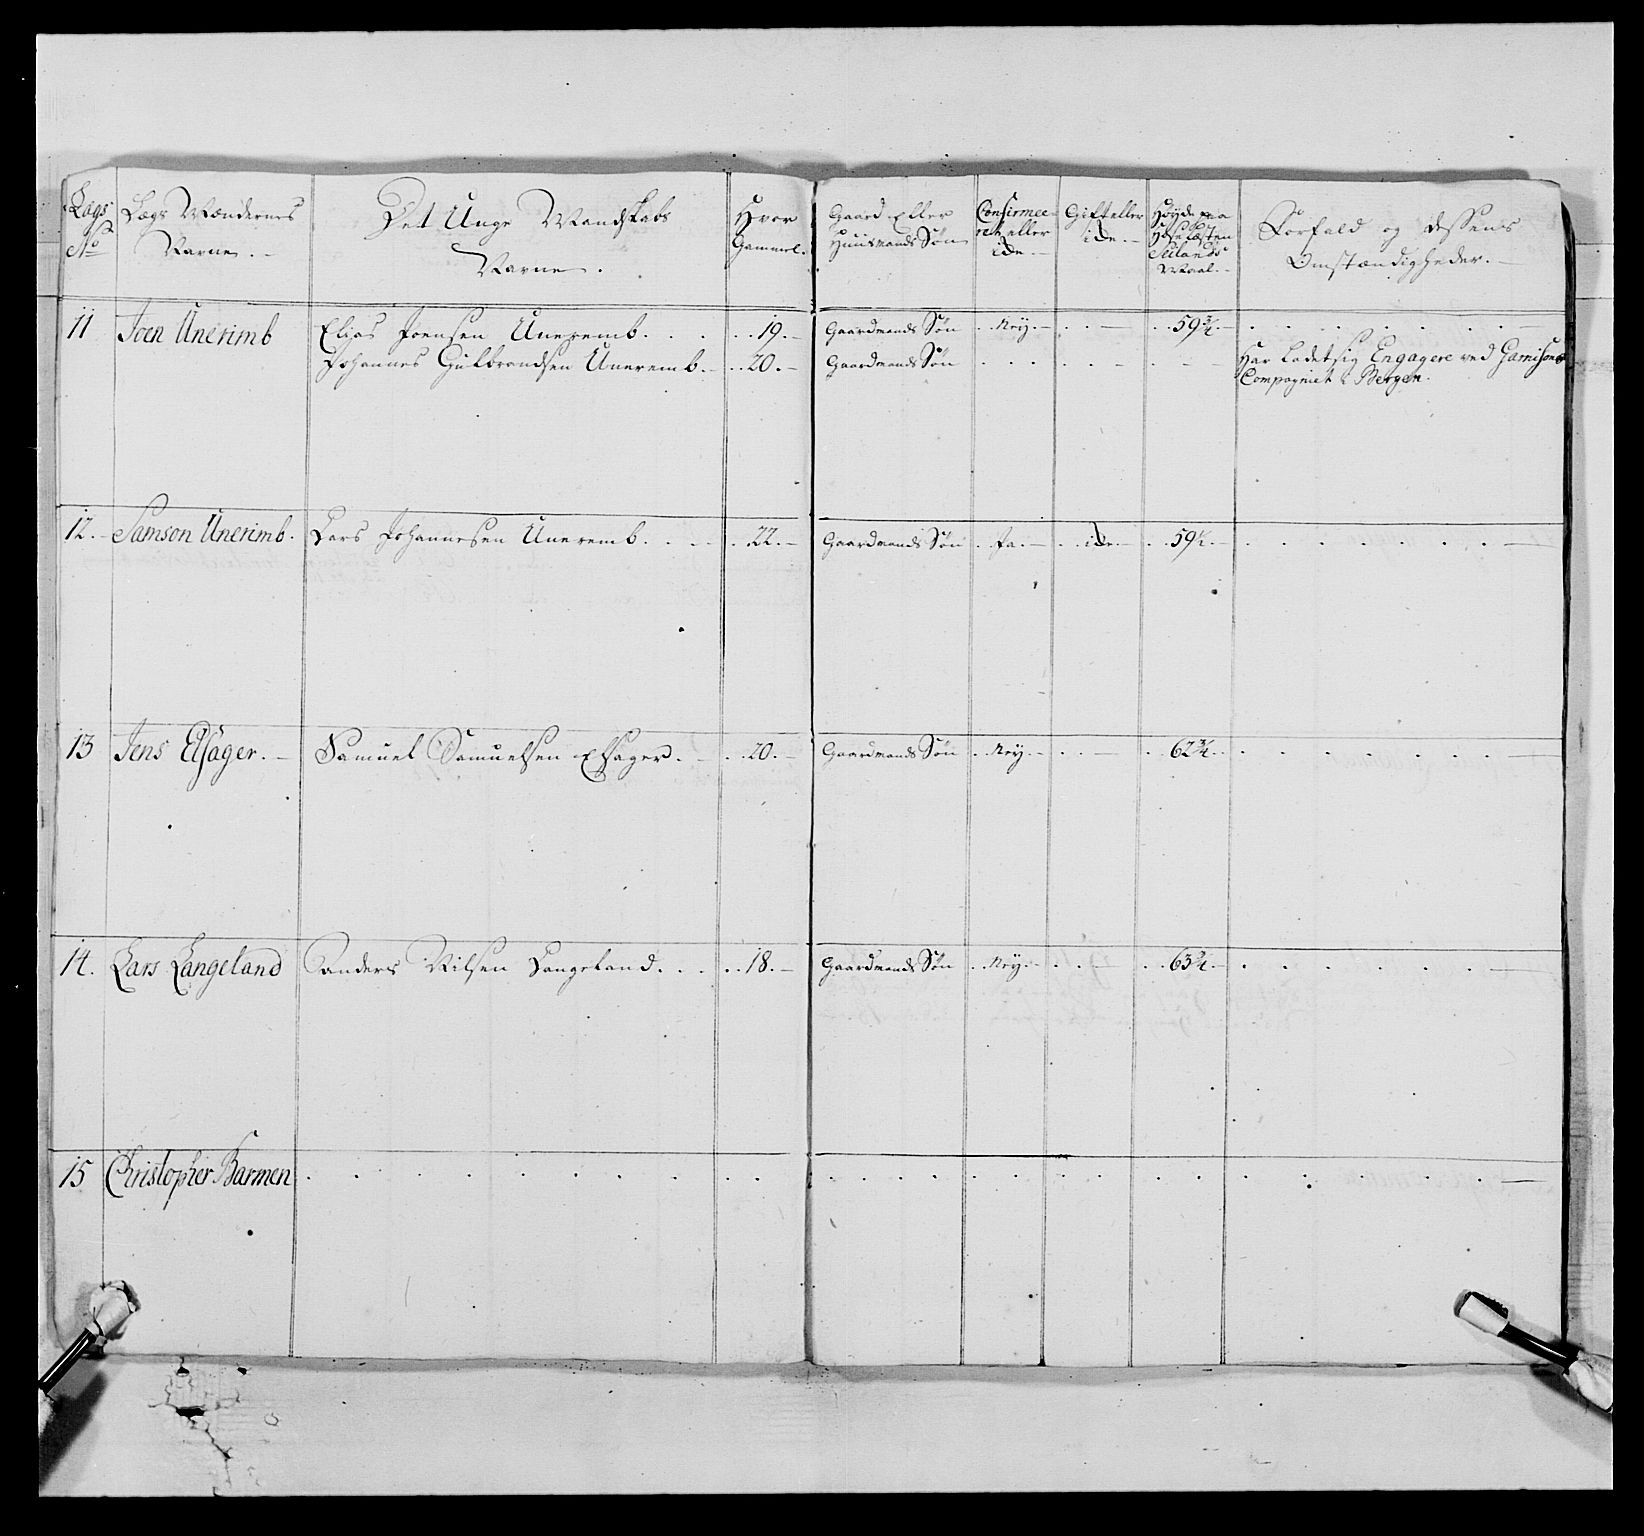 Lægs No Lægs Mændernes Navne. Det Unge Mandskabs Navne. Hvor Gammel. Gaard Eller Huusmands Søn Confirmeeret eller iche Gift eller iche. Høyde Sielands Maal. Forfald og dessens Omstændigheder.
11 Joen Unerimb Elias Joensen Uneremb. 19. Gaardmands Søn Ney. 59¾
Johannes Gulbrandsen Uneremb. 20. Gaardmands Søn Har Ladet sig Engagere ved Garnisons
Compagniet i Bergen.
12. Samson Unerimb. Lars Johannesen Uneremb. 22. Gaardmands Søn Ja. iche. 59¼
13 Jens Elsager. Samuel Samuelsen Elsager. 20. Gaardmands Søn Ney. 62¾
14. Lars Langeland Anders Nilsen Langeland. 18. Gaardmands Søn Ney. 63¾
15 Christopher Barmen